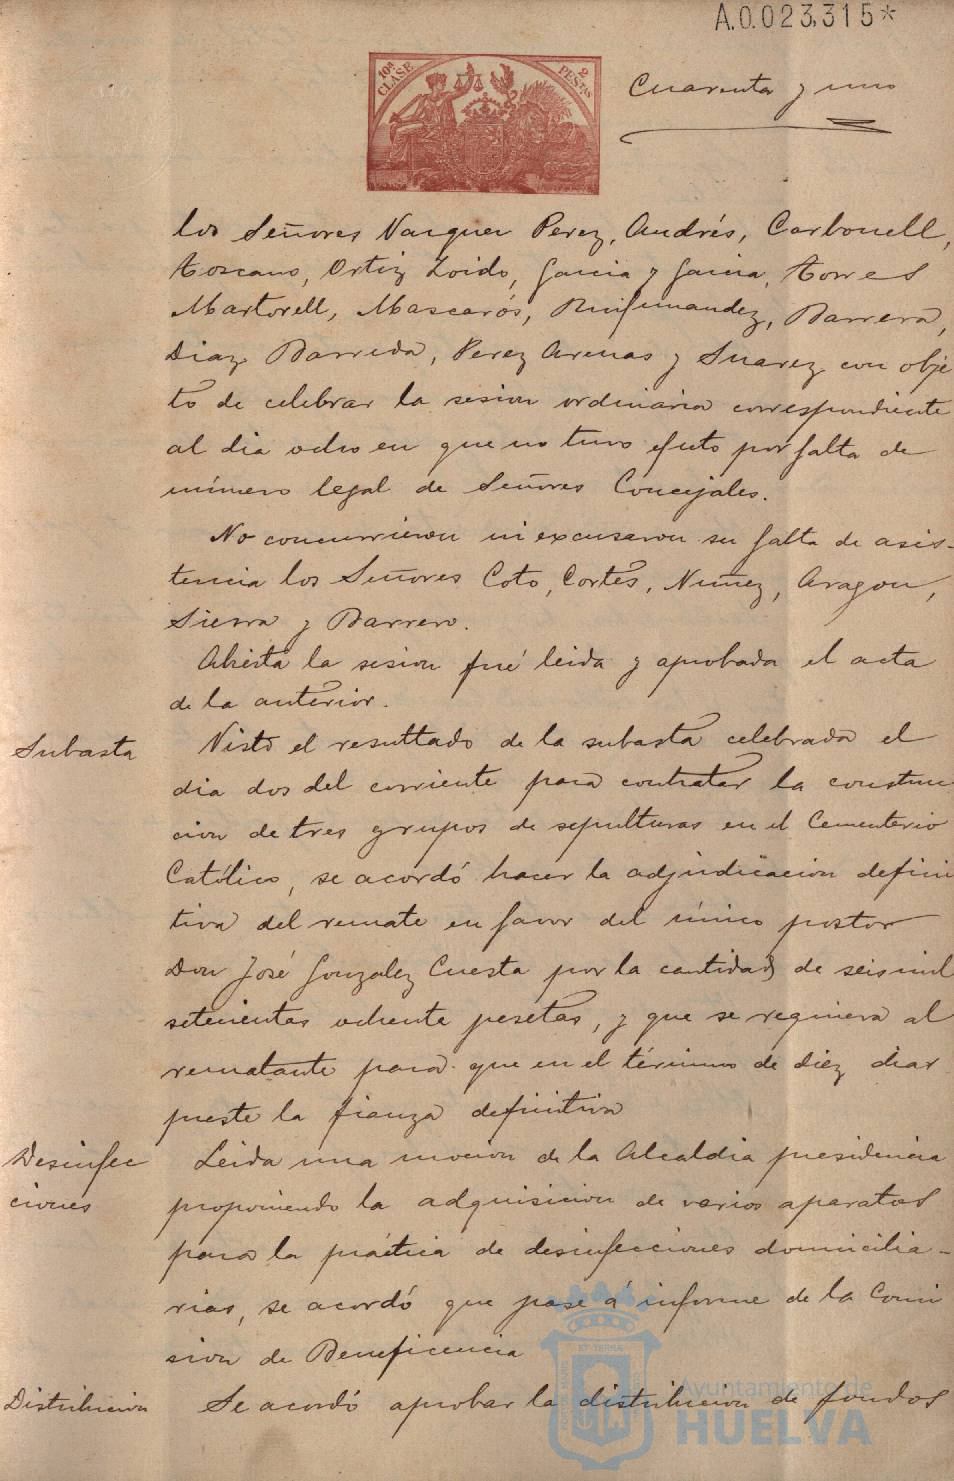 A.0.023,315*
10ª CLASE
2 PESTAS
Cuarenta y uno
los Señores Vazquez Perez, Andrés, Carbonell,
Toscano, Ortiz Loido, Garcia y Garcia, Torres
Martorell, Mascarós, Ruifernandez, Barrera,
Diaz Barreda, Perez Arenas y Suarez con obje
to de celebrar la sesion ordinaria correspondiente
al dia ocho en que no tuvo efecto por falta de
número legal de Señores Concejales.
No concurrieron ni excusaron su falta de asis-
tencia los Señores Coto, Cortés, Nuñez, Aragon,
Sierra y Barrero.
Abierta la sesion fué leida y aprobada el acta
de la anterior.
Subasta
Visto el resultado de la subasta celebrada el
dia dos del corriente para contratar la construc
cion de tres grupos de sepulturas en el Cementerio
Católico, se acordó hacer la adjudicacion defini
tiva del remate en favor del único postor
Don José Gonzalez Cuesta por la cantidad de seis mil
setecientas ochenta pesetas, y que se requiera al
rematante para que en el término de diez dias
preste la fianza definitiva
Desinfec
ciones
Leida una mocion de la Alcaldia presidencia
proponiendo la adquisicion de varios aparatos
para la práctica de desinfecciones domicilia-
rias, se acordó que pase á informe de la Comi
sion de Beneficencia
Distribucion
Se acordó aprobar la distribucion de fondos
Ayuntamiento de
HUELVA